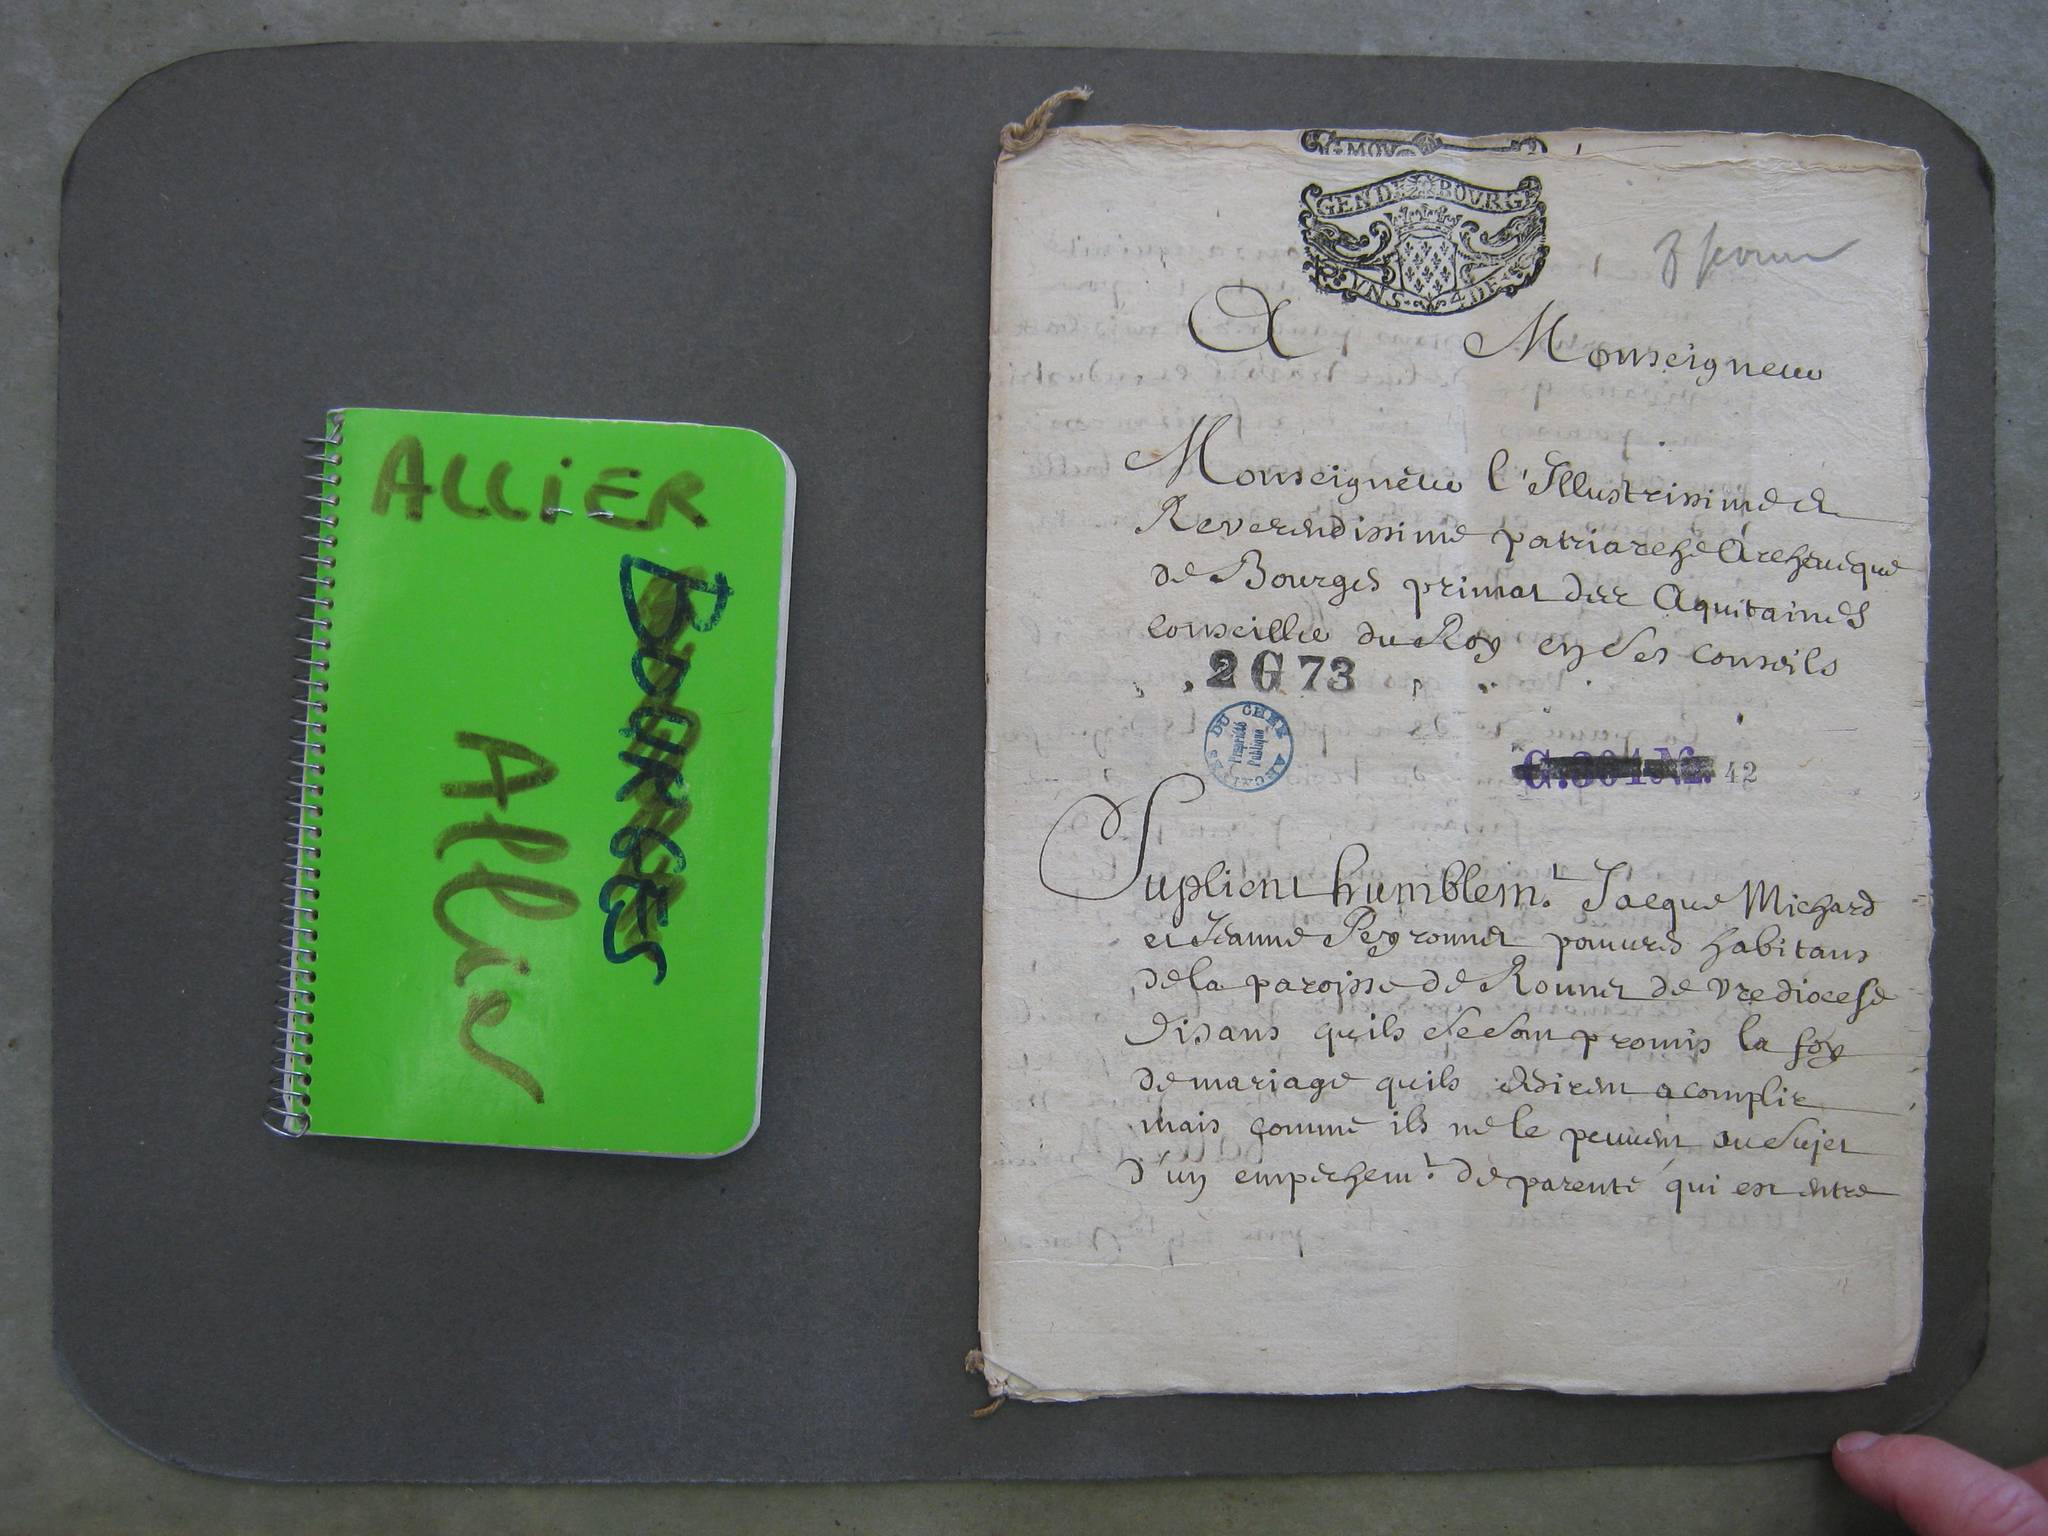 ALLiER
BOURGES
Allier
GEN DE BOVRGES
VNS. 4 DE
A Monseigneur
Monseigneur l'Illustrissime et
Reverendissime patriarche Archeveque
de Bourges primat des Aquitaines
conseiller du Roy en ses conseils
2 G 73
ARCHIVES DU CHER
Propriété
Publique
42
Suplient humblemt. Jacque Michard
et Jeanne Peyronnet pauures habitans
de la paroisse de Ronnet de vre diocese
disans quils se sont promis la foy
de mariage quils desirent acomplir
mais comme ils ne le peuuent au sujet
d'un empechemt. de parenté qui est entre